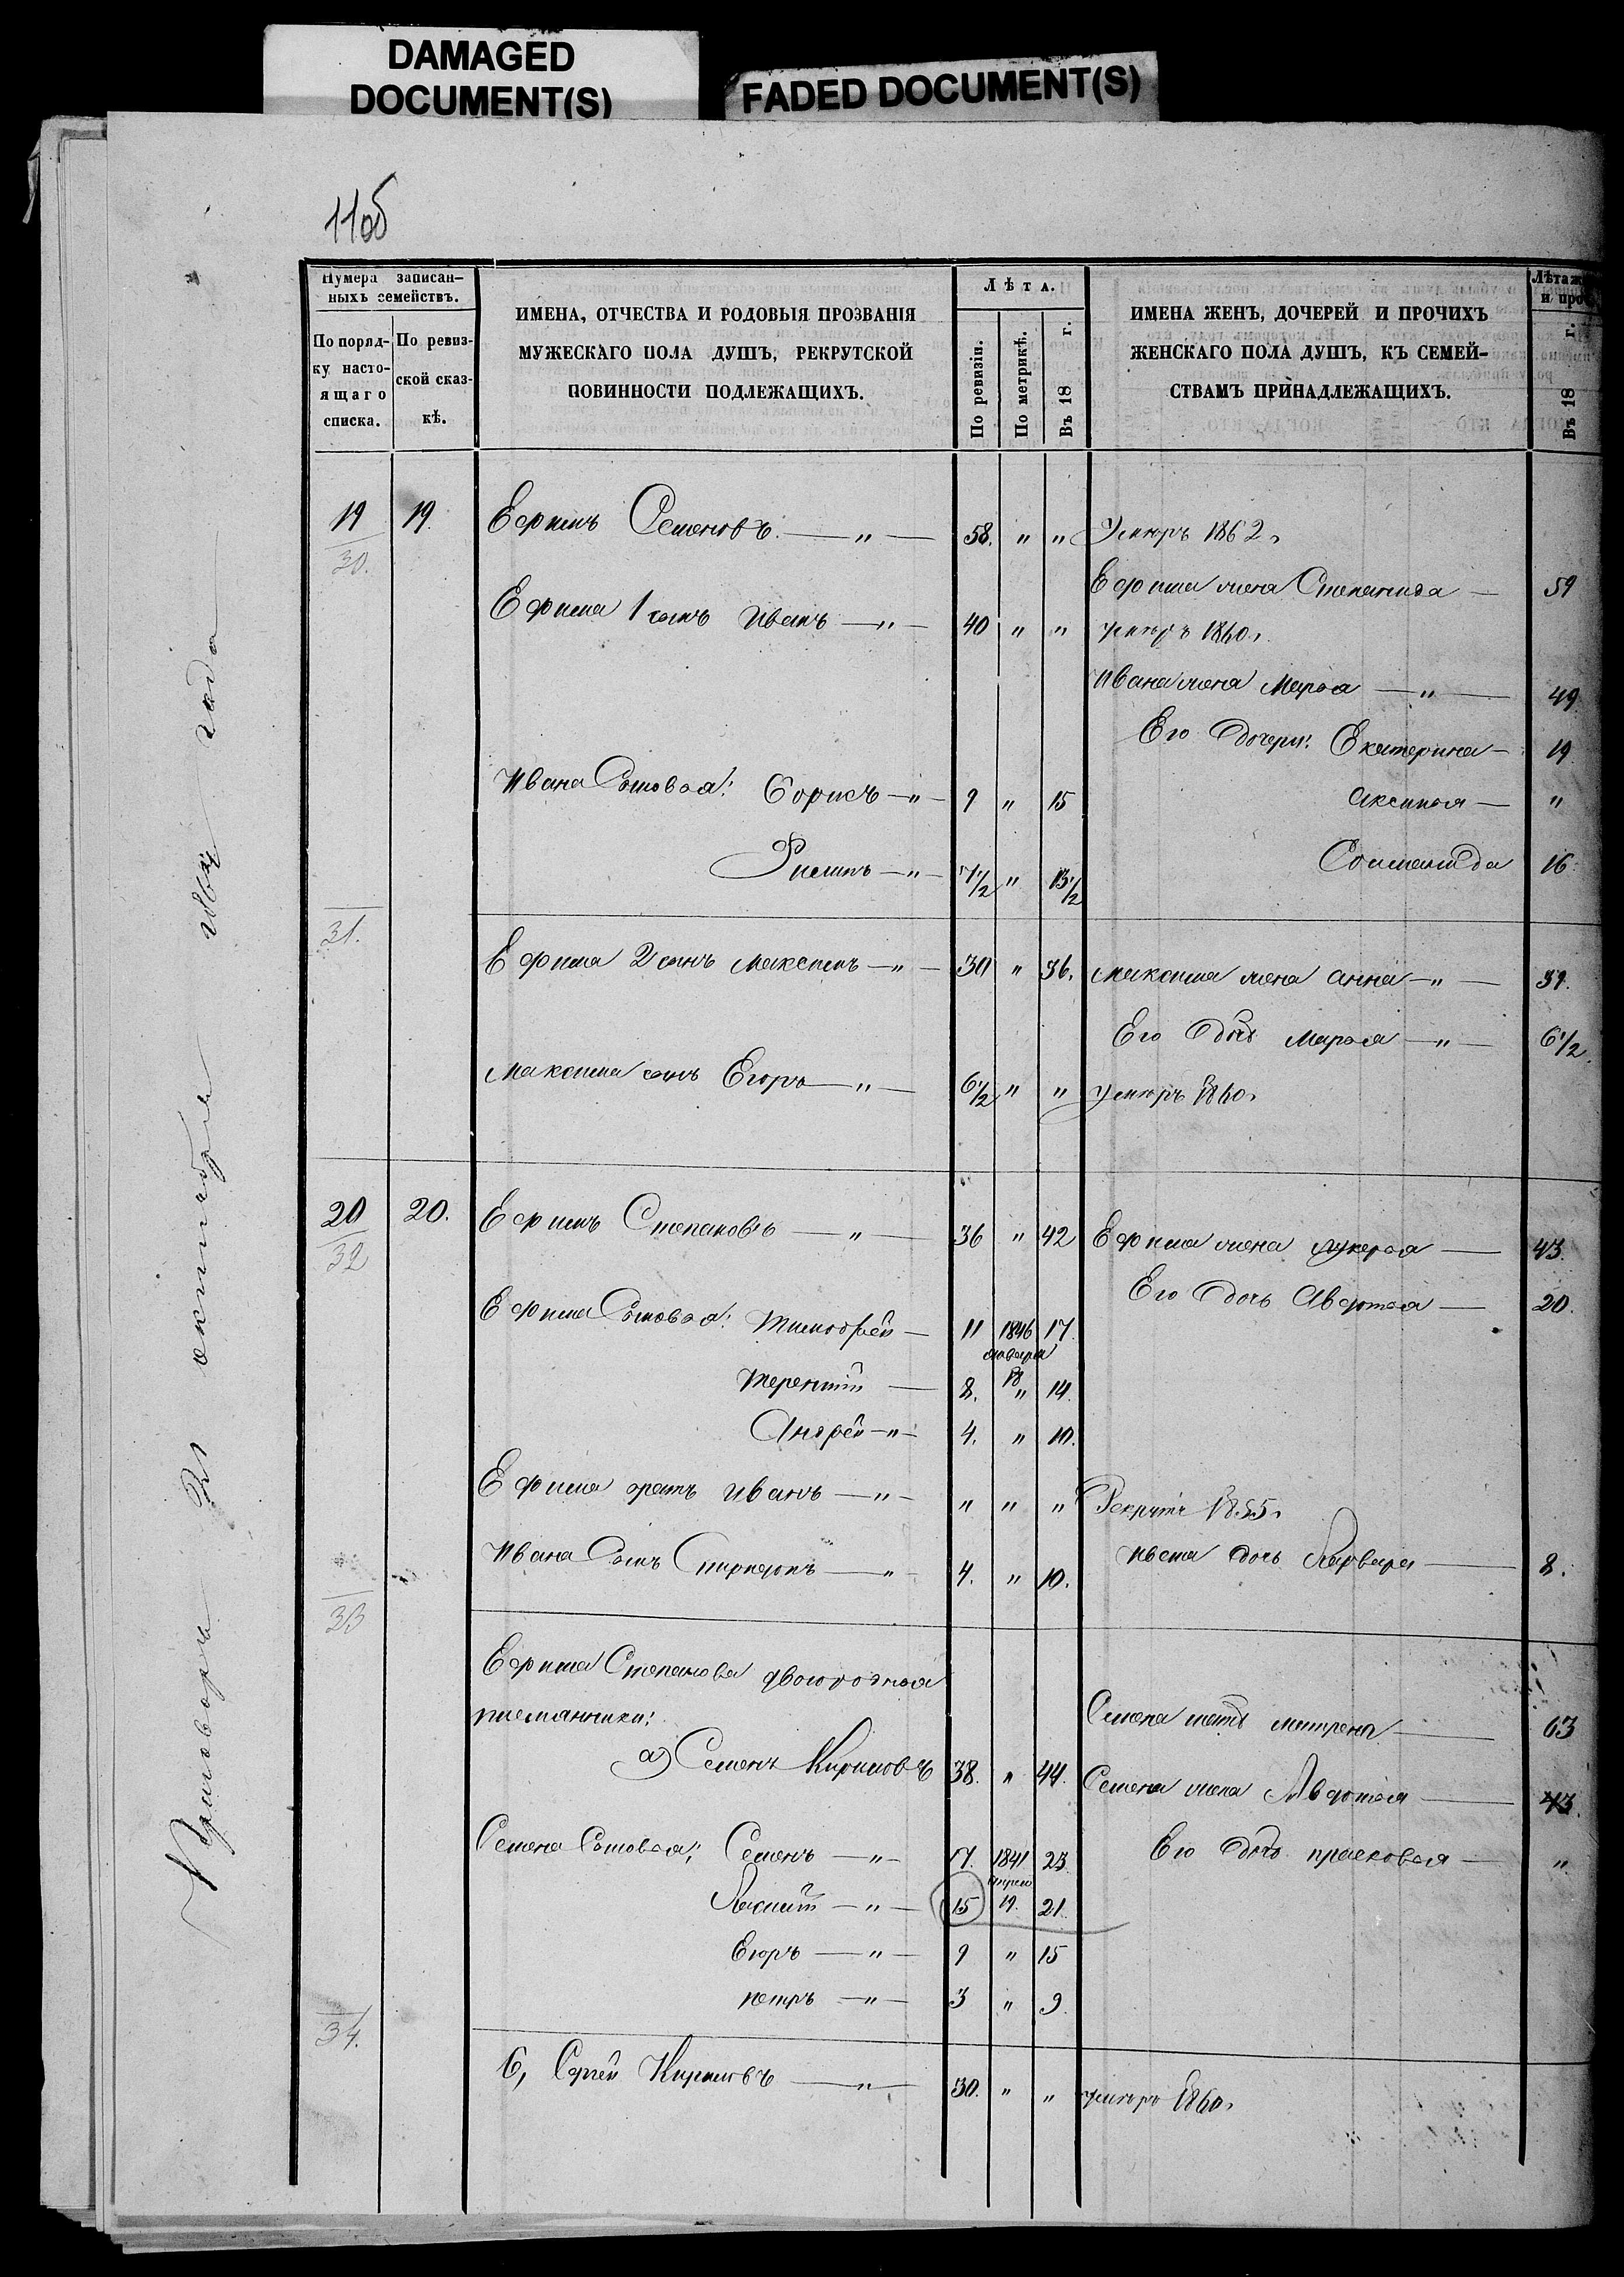 DAMAGED
DOCUMENT(S)
FADED DOCUMENT(S)
11об
Нумера записан-
ныхъ семействъ.
По поряд-
ку насто-
ящаго
списка.
По ревиз-
ской сказ-
кѣ.
ИМЕНА, ОТЧЕСТВА И РОДОВЫЯ ПРОЗВАНІЯ
МУЖЕСКАГО ПОЛА ДУШЪ, РЕКРУТСКОЙ
ПОВИННОСТИ ПОДЛЕЖАЩИХЪ.
Лѣта.
По ревизіи.
По метрикѣ.
Въ 18 г.
ИМЕНА ЖЕНЪ, ДОЧЕРЕЙ И ПРОЧИХЪ
ЖЕНСКАГО ПОЛА ДУШЪ, КЪ СЕМЕЙ-
СТВАМЪ ПРИНАДЛЕЖАЩИХЪ.
Лѣта ж
и про
Въ 18 г.
19 19. Ефимъ Семеновъ — „ — 58. „ „ умеръ 1862.
30.
Ефима жена Степанида — 59
Ефима 1 сынъ Иванъ — „ — 40 „ „ умеръ 1860.
Ивана жена Марфа — „ — 49
Его дочери: Екатерина — 19
Ивана сыновья: Борисъ — „ — 9 „ 15 Аксинья — „
Филипъ — „ — 7 1/2 „ 13 1/2 Соломанида 16
31.
Ефима 2 сынъ Максимъ — „ — 30 „ 36. Максима жена Анна — „ — 39.
Его дочь Марья — „ — 6 1/2.
Максима сынъ Егоръ — „ — 6 1/2 „ „ умеръ 1860.
20 20. Ефимъ Степановъ — „ — 36 „ 42 Ефима жена Лукерья — 43.
32
Его дочь Авдотья — 20.
Ефима сыновья: Тимофей — 11 1846 17.
января
Терентій — 8. 18 „ 14.
Андрей — „ — 4. „ 10.
Ефима братъ Иванъ — „ — „ „ „ Рекрутъ 1855.
Ивана сынъ Спиридонъ — „ — 4. „ 10. Ивана дочь Варвара — 8.
33
Ефима Степанова двоюродные
племянники:
Семена мать Матрена — 63
а) Семенъ Кириловъ 38. „ 44. Семена жена Авдотья — 43.
Семена сыновья: Семенъ — „ — 17. 1841 23. Его дочь Прасковья — „
апреля
15 19. 21.
Егоръ — „ — 9 „ 15
Петръ — „ — 3 „ 9.
34.
б, Сергей Кириловъ — „ — 30. „ „ умеръ 1860.
года